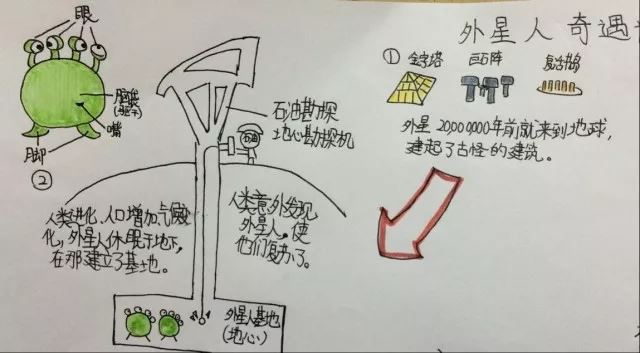 外星人奇遇
①
金字塔
巨石阵
外星20000000年前就来到地球,
建起了古怪的建筑。
眼
脑袋
(躯干)
嘴
脚
②
石油勘探
地心勘探机
石油
人类进化、人口增加气候变
化,外星人休眠于地下,
在那建立了基地。
人类意外发现
外星人,使
他们复苏了。
外星人基地
(地心)